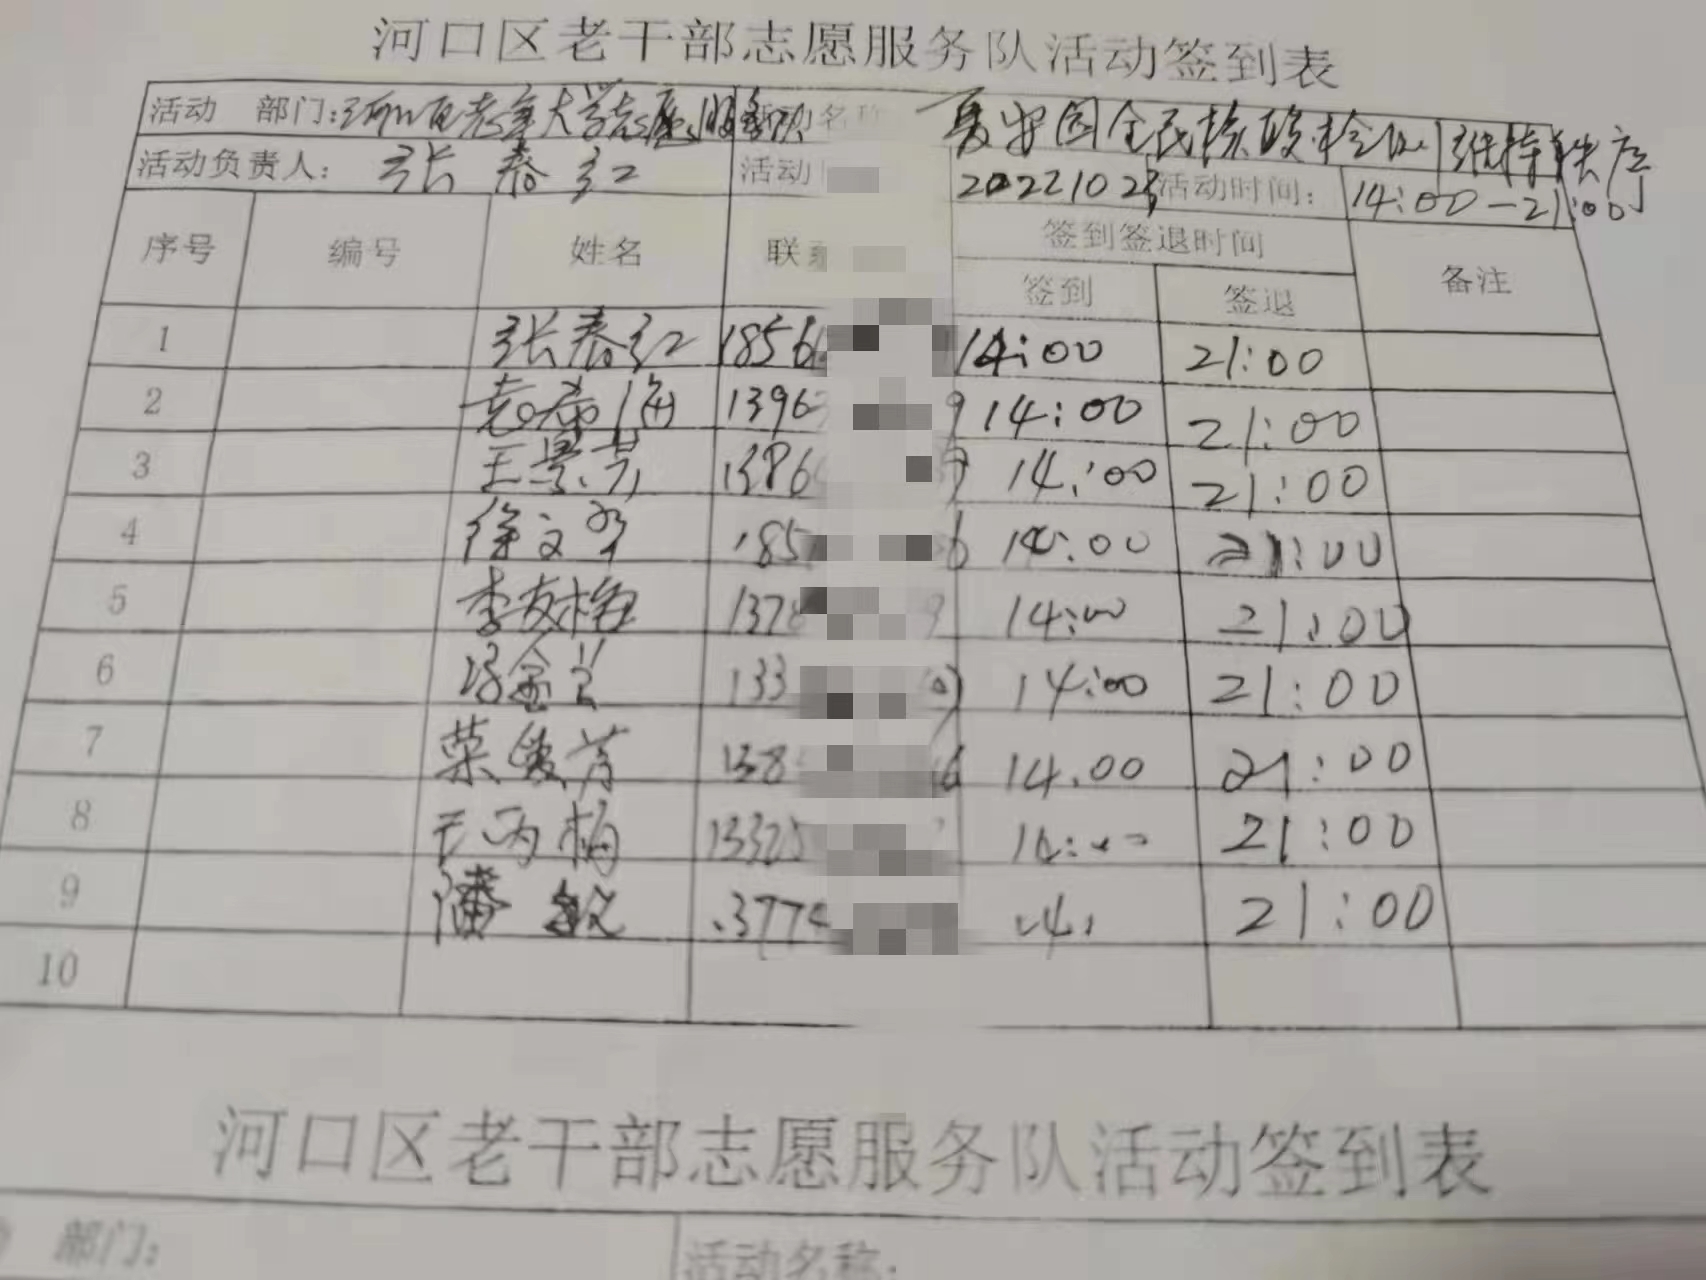 河口区老干部志愿服务队活动签到表
活动 部门:河口区老年大学志愿服务队 活动名称 夏安园全民核酸检测维持秩序
活动负责人: 张春红 活动 20221023 活动时间: 14:00-21:00
序号 编号 姓名 联系 签到签退时间 备注
签到 签退
1 张春红 1856 14:00 21:00
2 袁希海 1396 9 14:00 21:00
3 王景芳 1386 14:00 21:00
4 徐文 185 6 14:00 21:00
5 李友梅 1378 9 14:00 21:00
6 冯金兰 133 14:00 21:00
7 荣俊芳 138 6 14.00 21:00
8 王丙梅 13325 21:00
9 潘敏 3774 14: 21:00
10
河口区老干部志愿服务队活动签到表
部门: 活动名称: